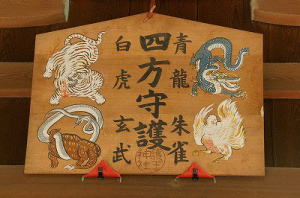 四方守護
青龍
朱雀
白虎
玄武